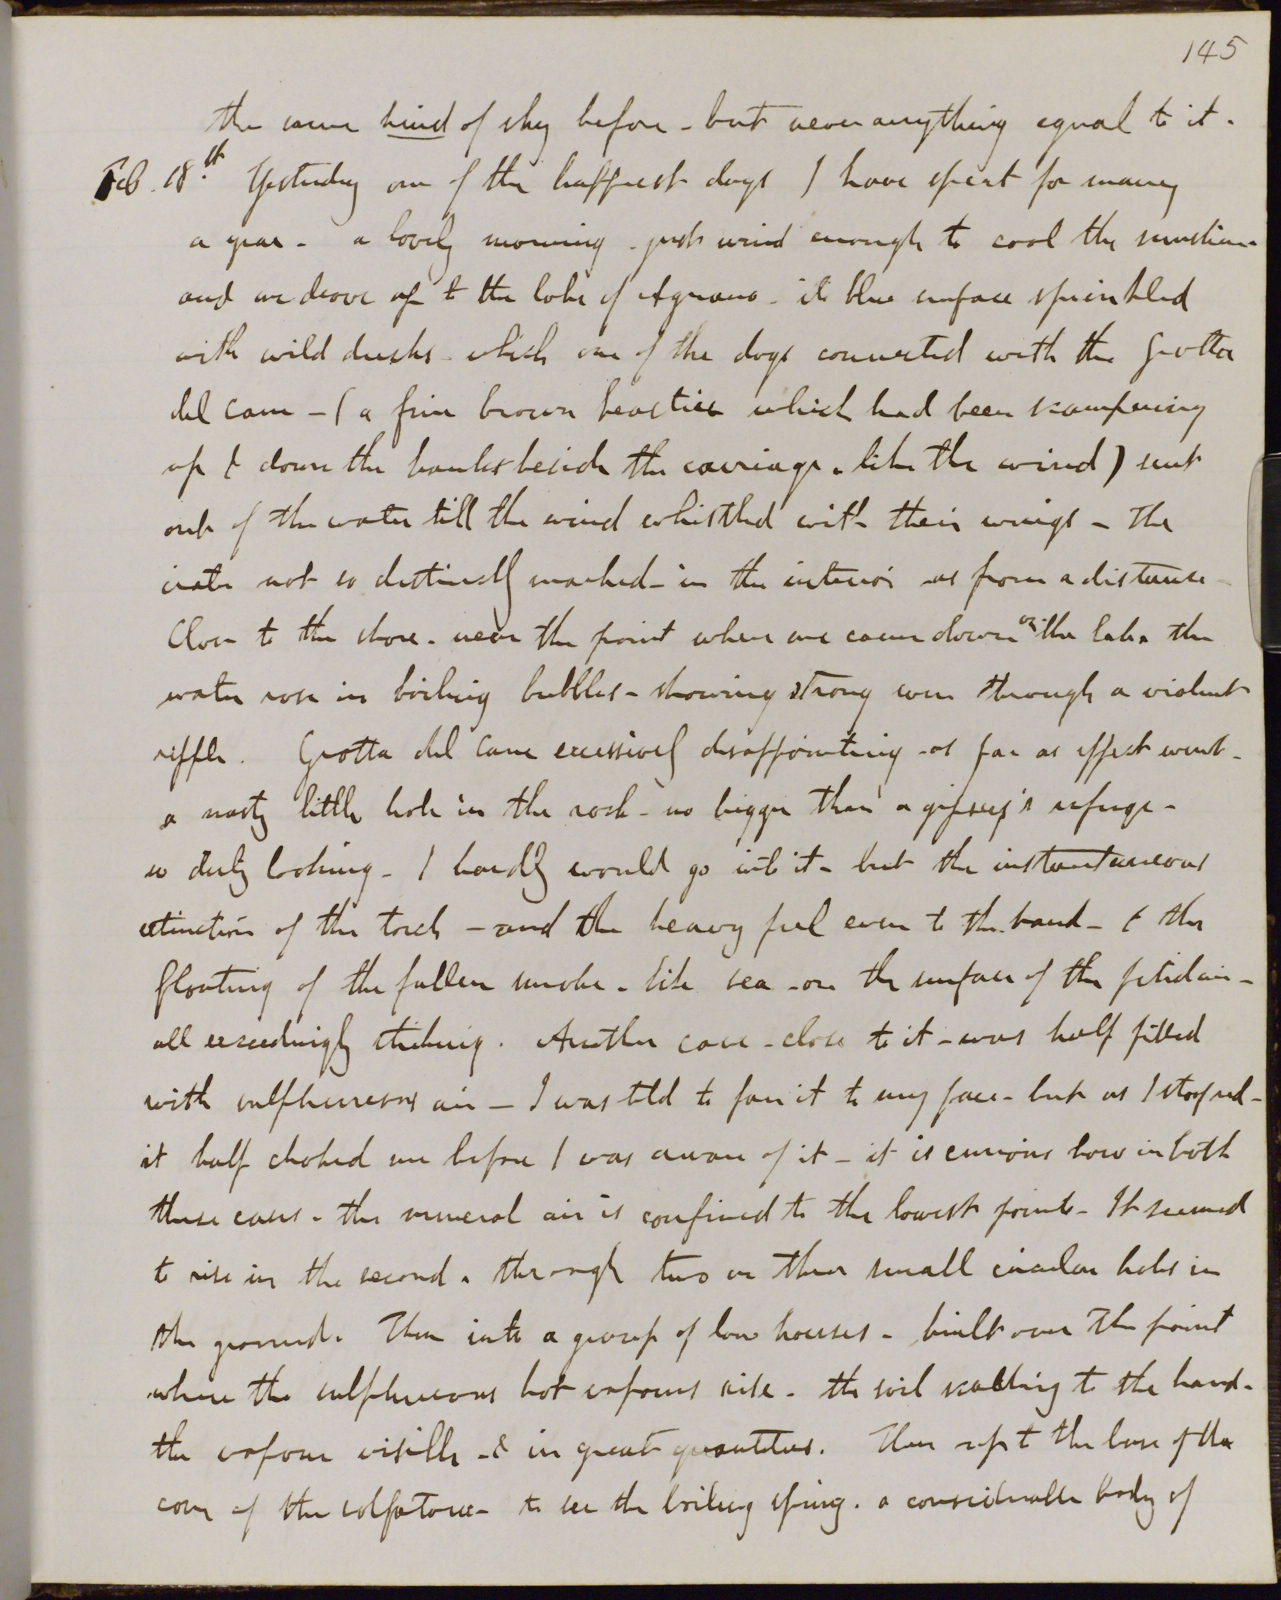 145
the same kind of sky before - but never anything equal to it.
Feb. 18th. Yesterday one of the happiest days I have spent for many
a year - a lovely morning - just wind enough to cool the sunshine
and we drove off to the lake of Agnano - its blue surface sprinkled
with wild ducks - which one of the dogs connected with the Grotta
del Cane - (a fine brown beastie which had been scampering
up & down the banks beside the carriage - like the wind) sent
out of the water till the wind whistled with their wings - The
crater not so distinctly marked - in the interior as from a distance -
Close to the shore - near the point where we came down on the lake the
water rose in boiling bubbles - showing strong even through a violent
ripple. Grotta del Cane excessively disappointing - as far as effect went -
a nasty little hole in the rock - no bigger than a gipsey's refuge -
so dirty looking - I hardly would go into it - but the instantaneous
extinction of the torch - and the heavy feel even to the hand - & the
floating of the fallen smoke - like sea - on the surface of the fetid air -
all exceedingly striking. Another cave - close to it - was half filled
with sulphureous air - I was told to fan it to my face - but as I stooped -
it half choked me before I was aware of it - it is curious how in both
these caves - the mineral air is confined to the lowest points - It seemed
to rise in the second - through two or three small circular holes in
the ground. Then into a group of low houses - built over the point
where the sulphureous hot vapours rise - the soil scalding to the hand -
the vapour visible - & in great quantities. Then up to the base of the
cone of the solfatara - to see the boiling spring. a considerable body of